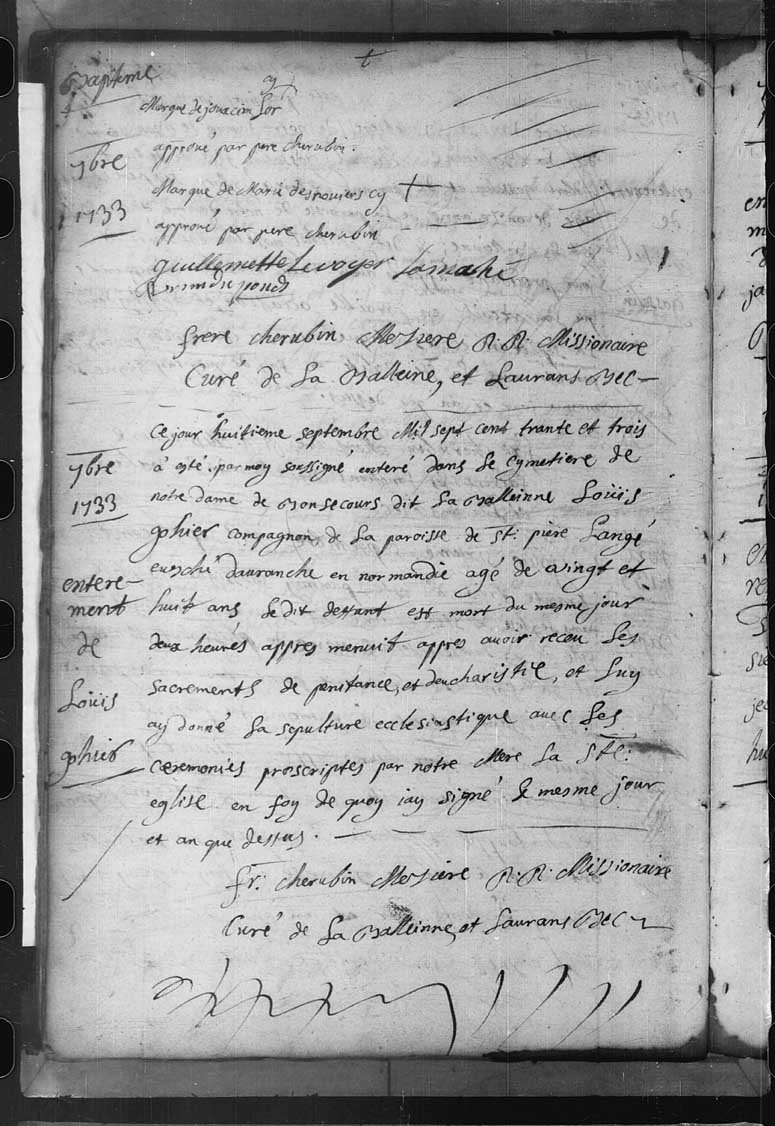 Baptême
Marque de jouacim
approuvé par pere cherubin.
7bre
Marque de Marie desrouiers
1733
approuvé par pere cherubin
guillemette Levoyer Lamahé
frere cherubin Missionaire
Curé de la Balleine, et Laurans Bec
ce jour huitieme septembre Mil sept cent trante et trois
7bre
à esté par moy soussigné enteré dans le cymetiere de
1733
notre dame de Bonsecours dit la Balleinne Loüis
gohier compagnon, de la paroisse de St. piere Langé
evesché dauranche en normandie agé de vingt et
entere-
ment
huit ans ledit deffant est mort du mesme jour
de
deux heures appres menuit appres avoir receu les
Loüis
sacrements de penitance, et deucharistie, et luy
ay donné la sepulture ecclesiastique avec les
gohier
ceremonies proscriptes par notre Mere la Ste.
eglise en foy de quoy iay signé le mesme jour
et an que dessus.
fr. cherubin Missionaire
Curé de la Balleinne, et Laurans Bec